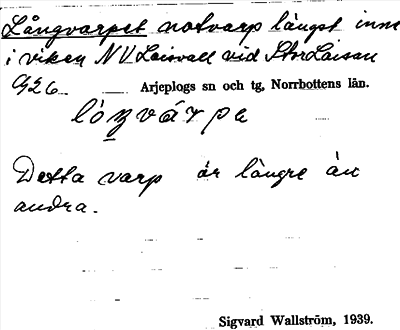 Långvarpet notvarp längst inne
i viken NV Laisvall vid StorLaisan
926. Arjeplogs sn och tg, Norrbottens län.
Detta varp är längre än
andra.
Sigvard Wallström, 1939.